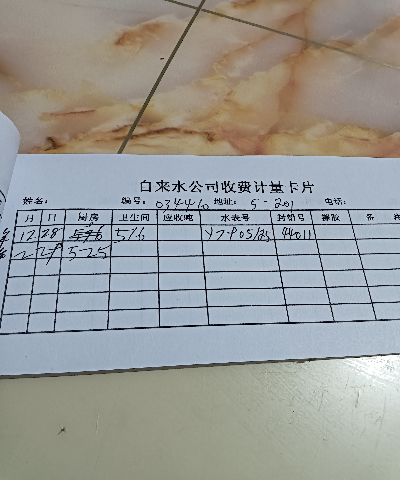 自来水公司收费计量卡片
姓名： 编号：034410 地址：5-201 电话：
月 日 厨房 卫生间 应收吨 水表号 封铅号 备
12 28 516 44011
2 29 525